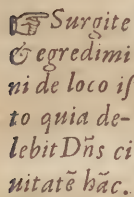 ☞ Surgite
& egredimi
ni de loco iſ
to quia de-
lebit Dñs ci
uitatē hāc.